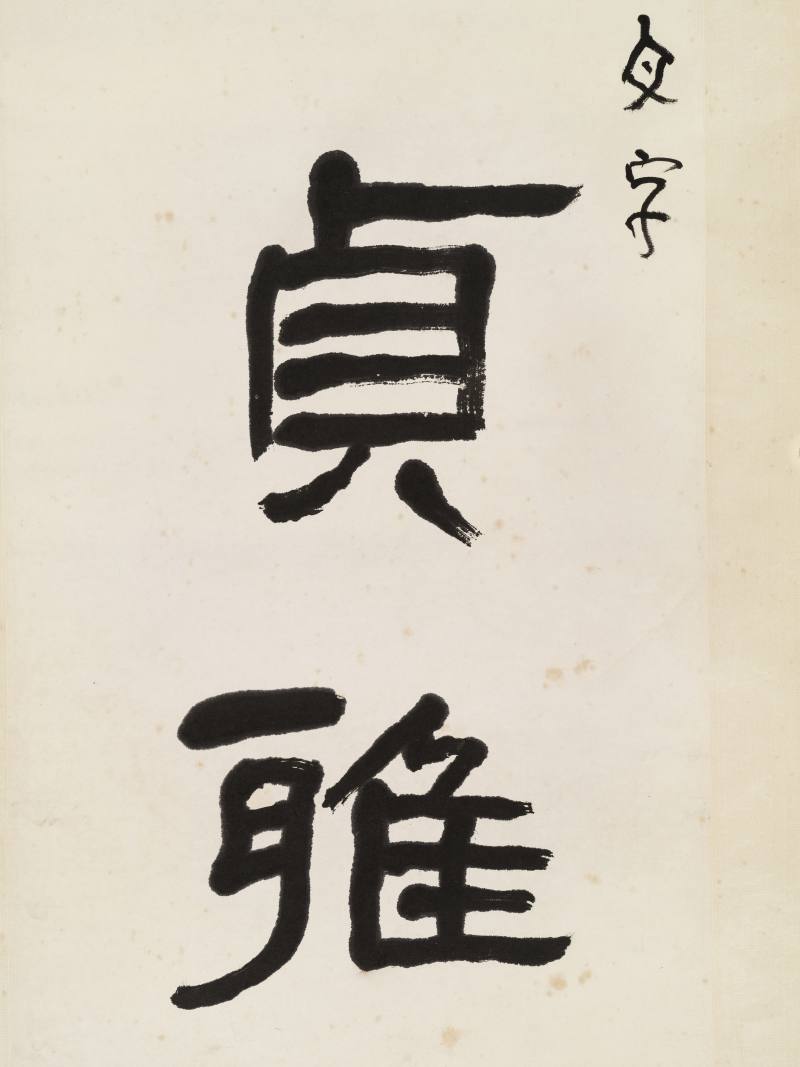 文字
貞雅